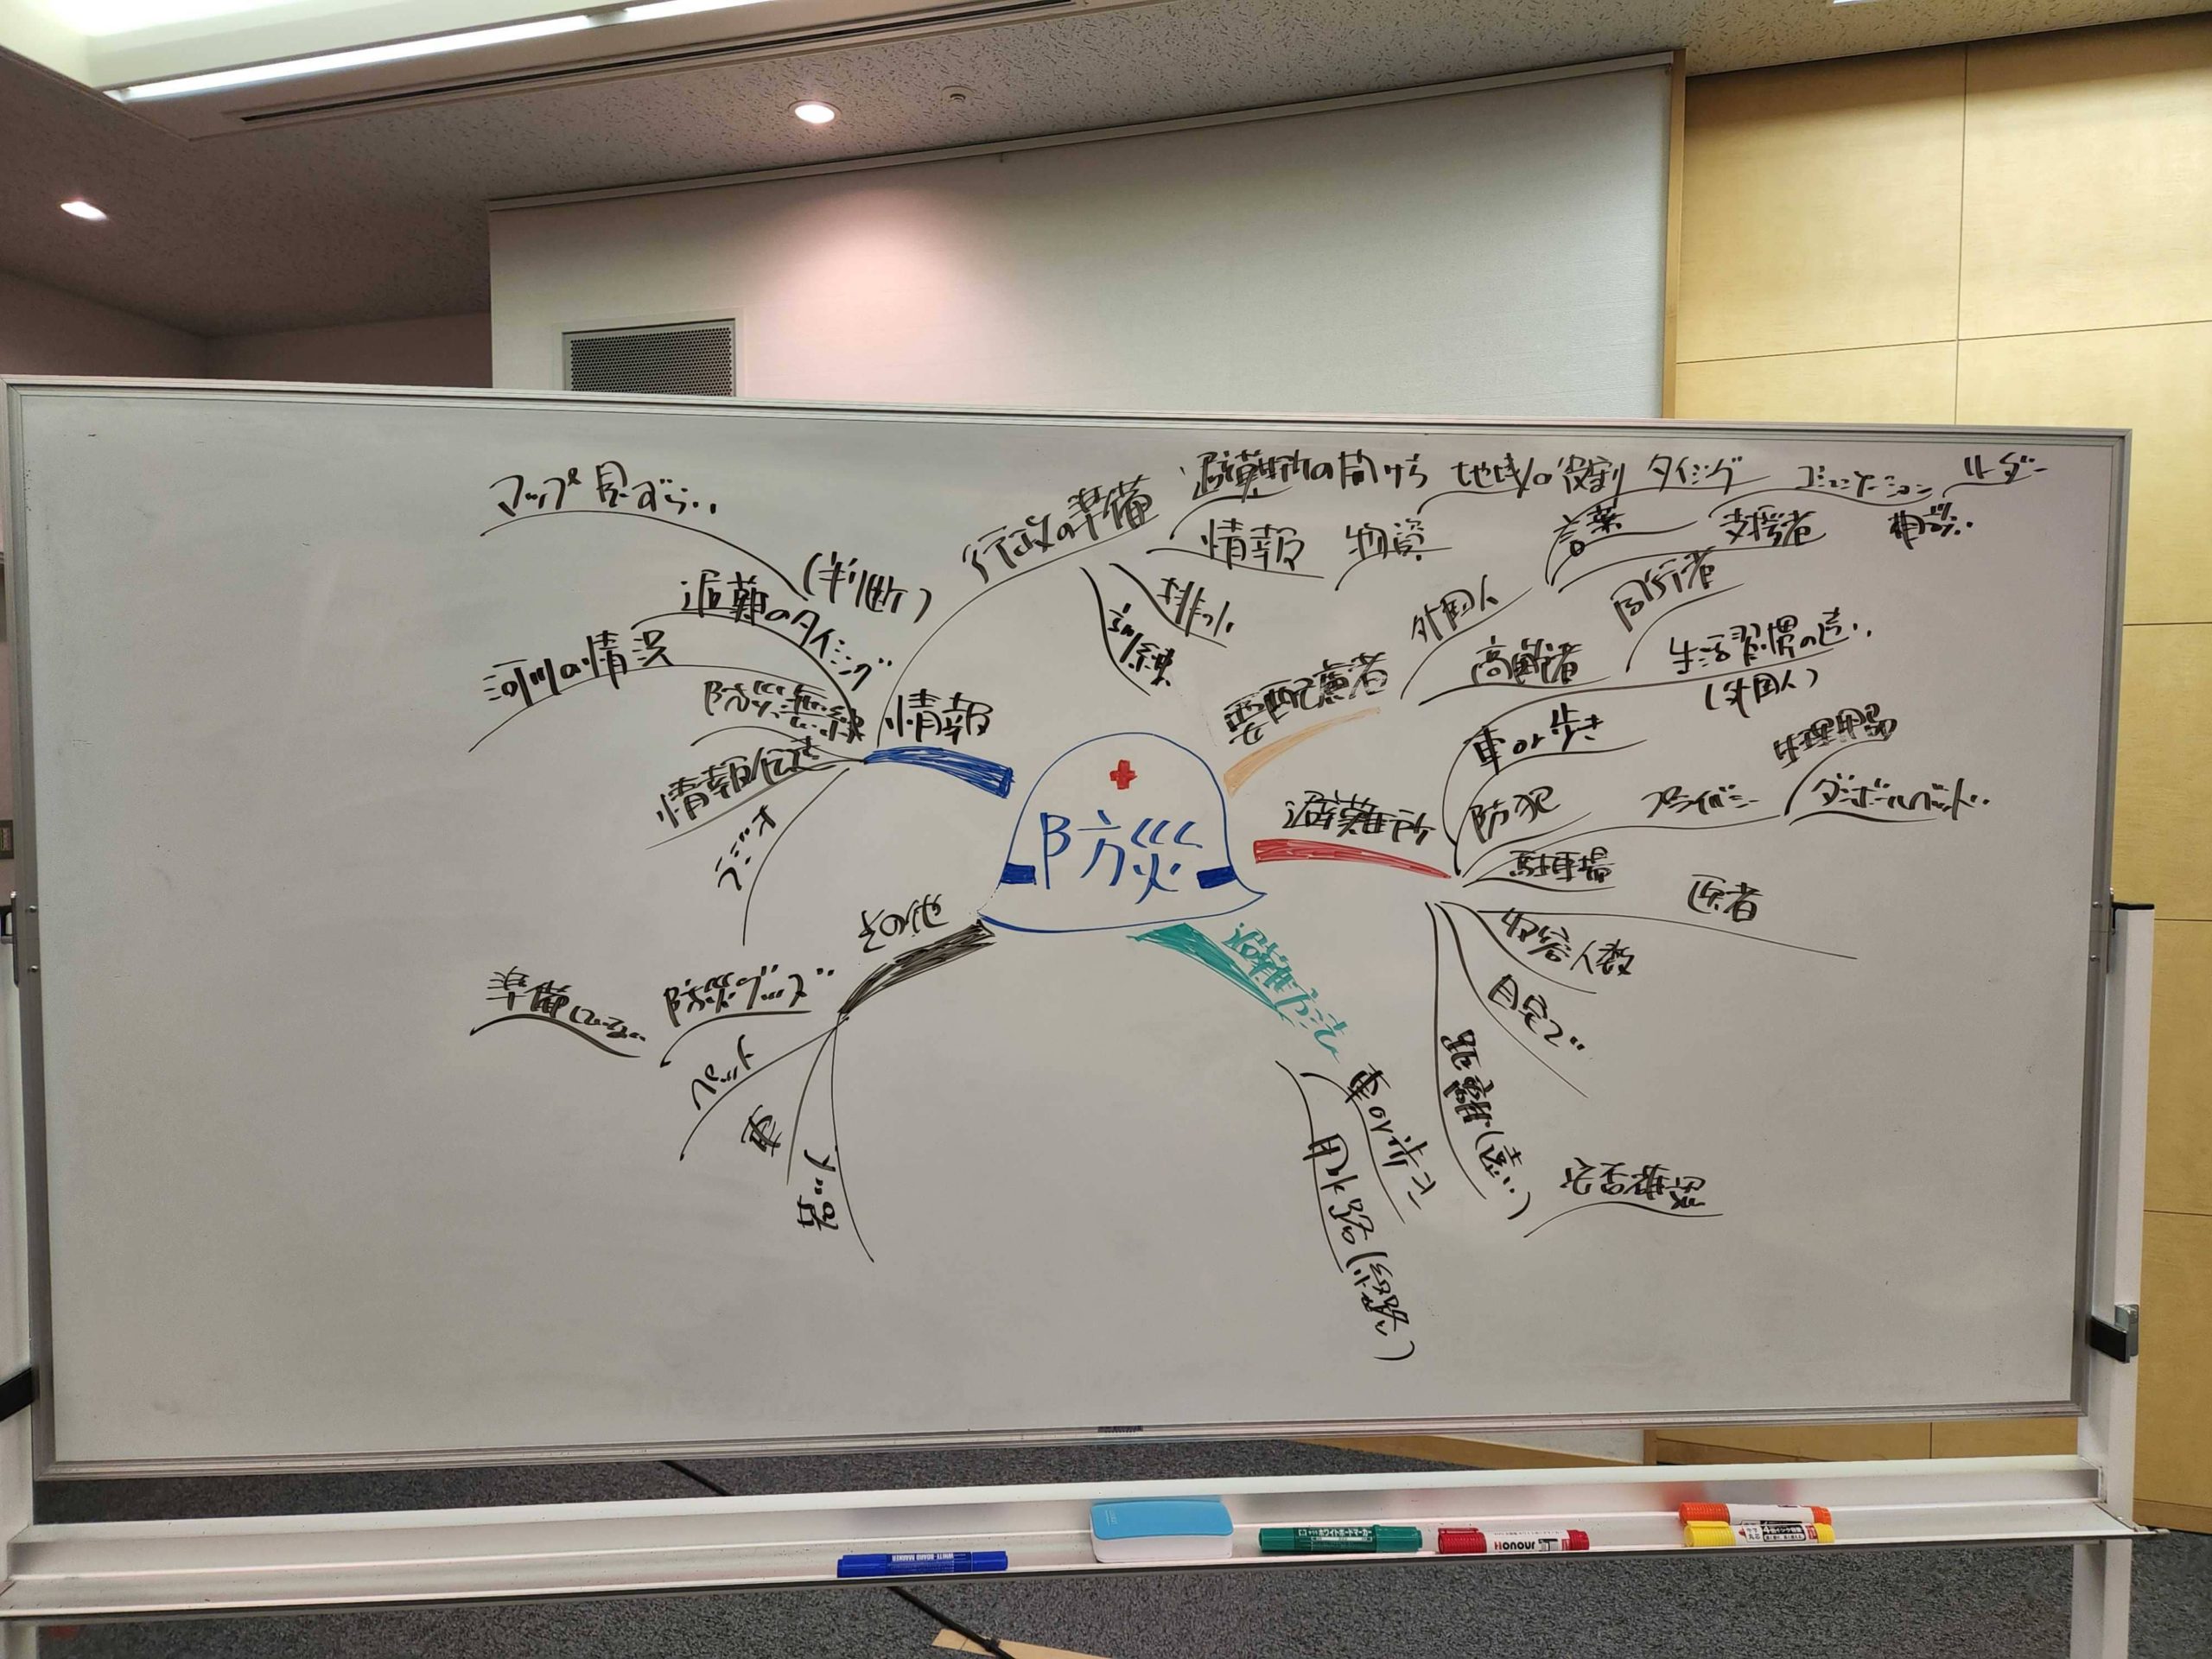 マップ見づらい
(判断)
避難のタイミング
河川の情況
防災無線
情報伝達
ラジオ
情報
行政の準備
避難所の開け方
地域の役割
タイミング
コミュニケーション
リーダー
情報
物資
言葉
支援者
相談
排水
訓練
外国人
同行者
要配慮者
高齢者
生活習慣の違い
(外国人)
車or歩き
生理用品
避難所
防犯
プライバシー
ダンボールベット
駐車場
医者
収容人数
自宅で
距離(遠い)
安否確認
防災
避難方法
車or歩こ
用水路(経路)
その他
防災グッズ
準備していない
ペット
WHITE BOARD MARKER
ホワイトボードマーカー
Honour